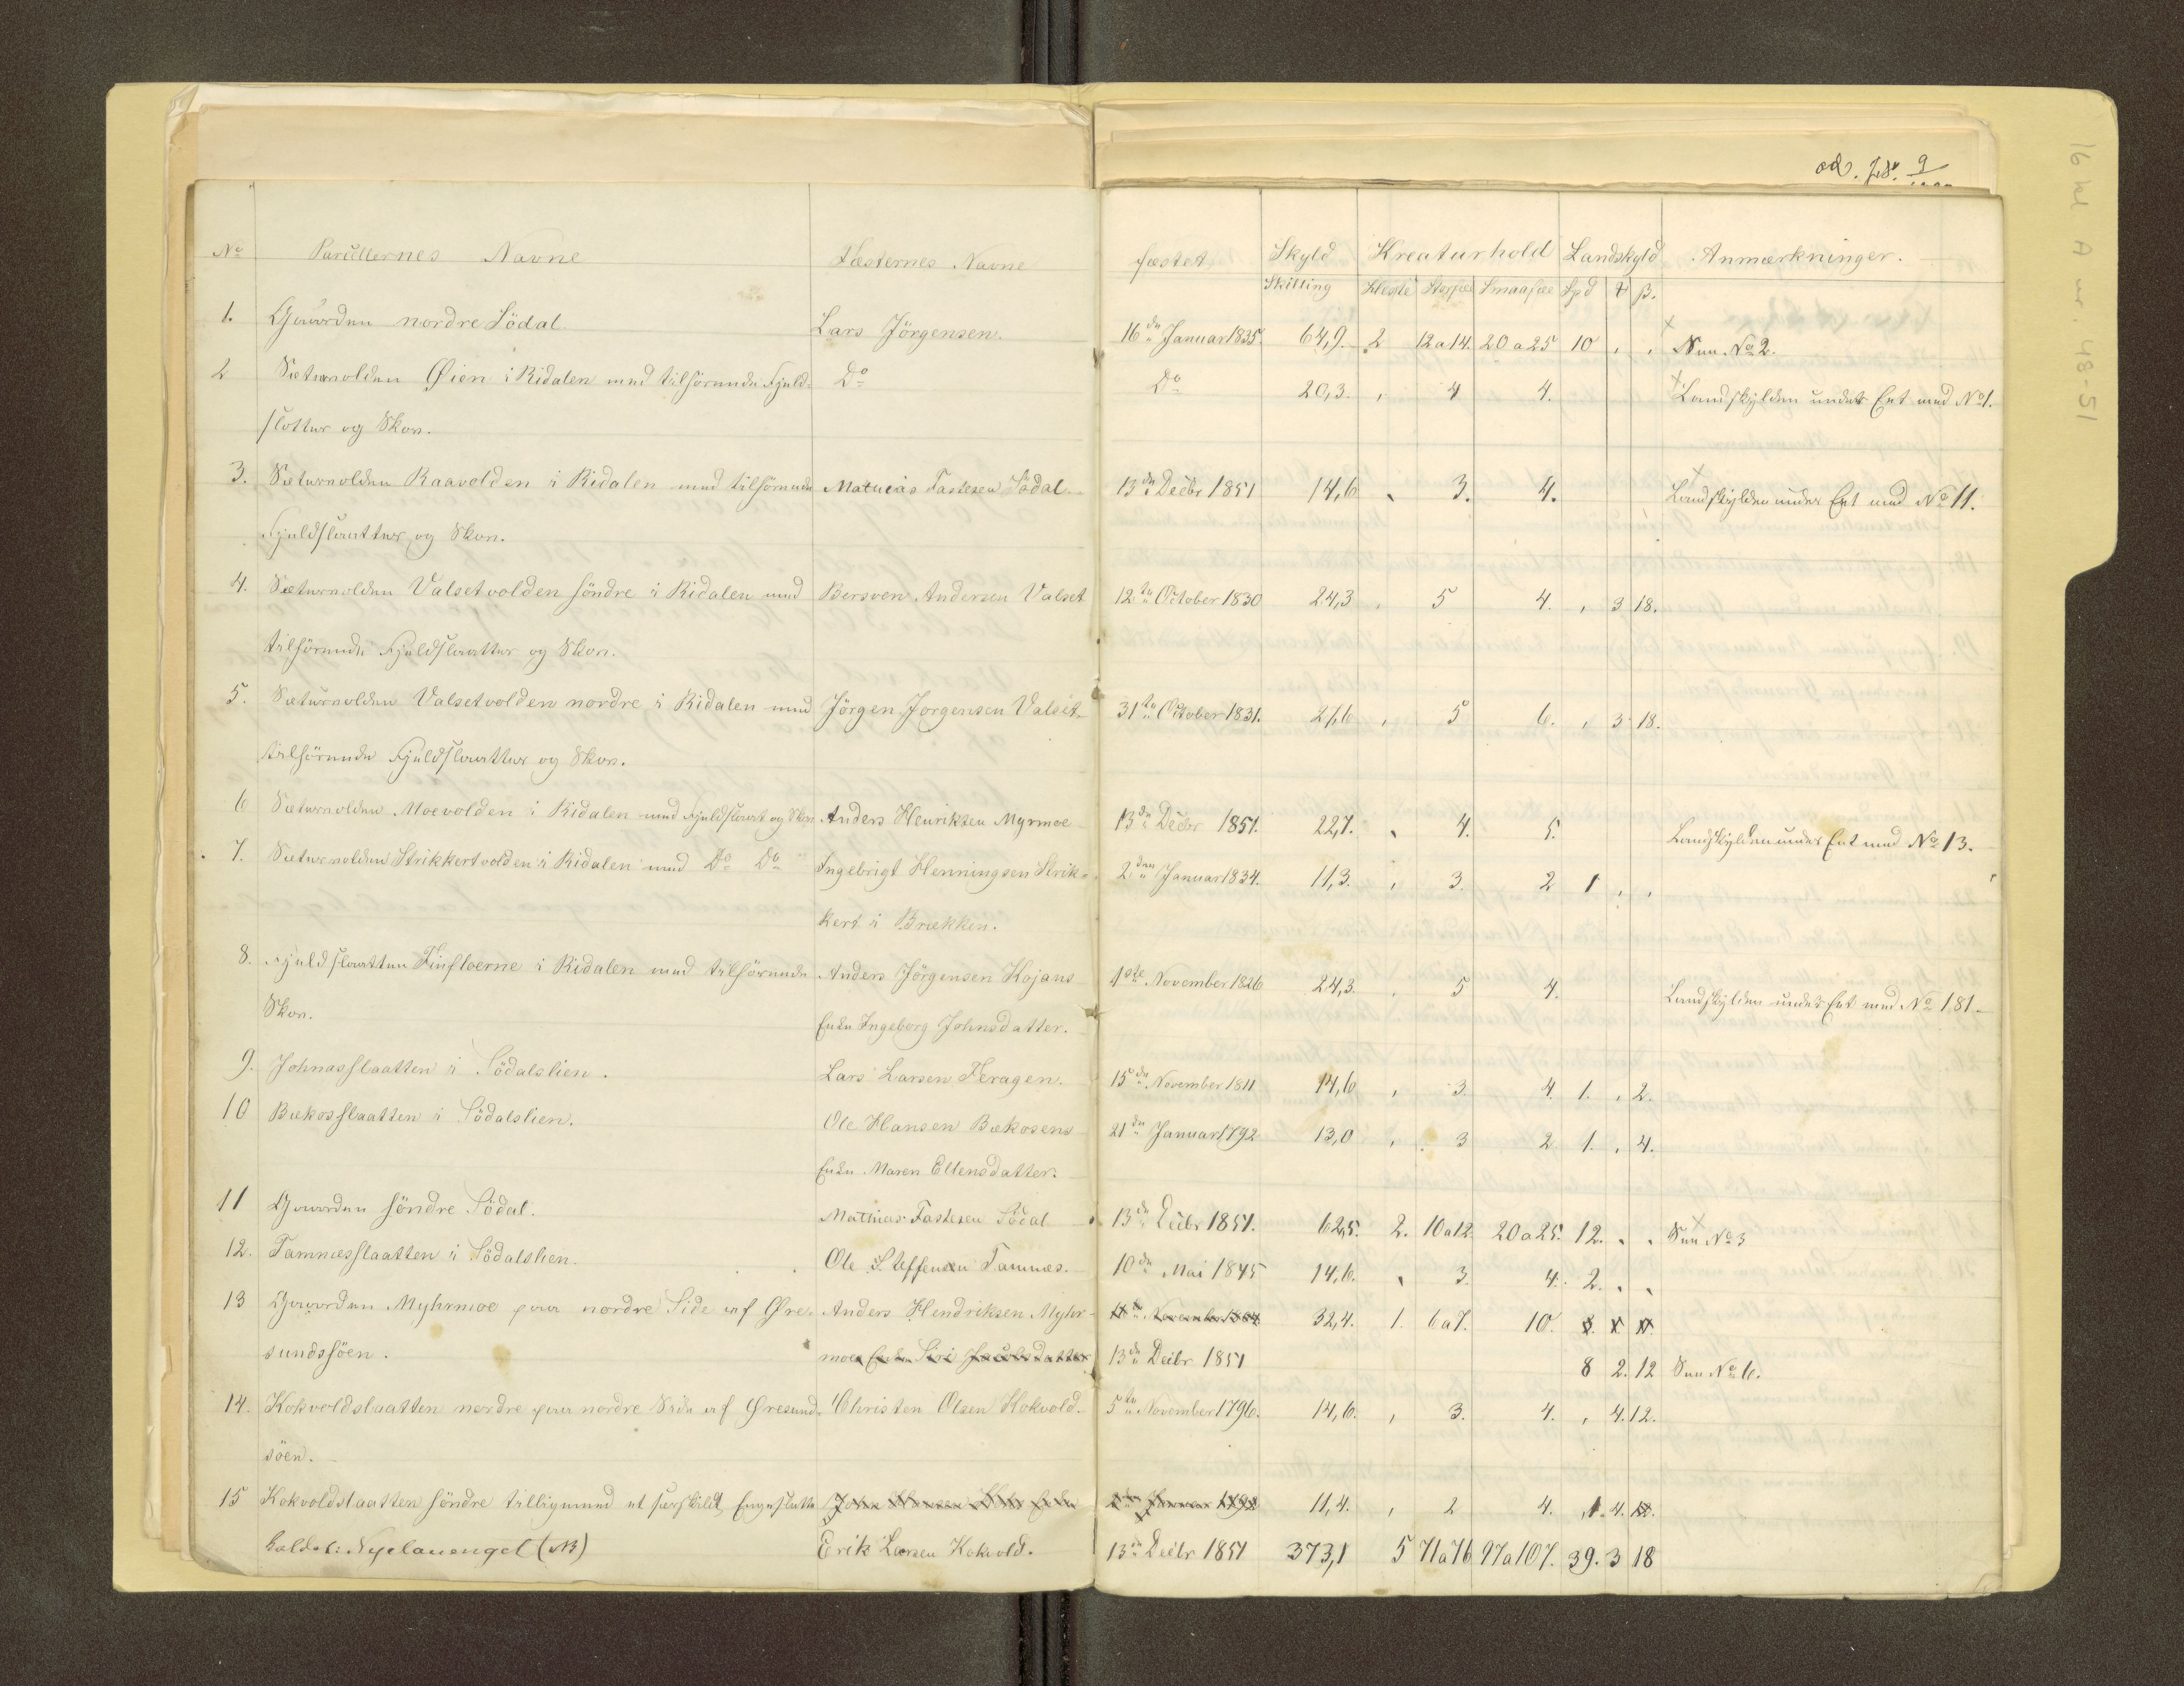 od. 9
16 hl A nr. 48-51
No Parcellernes Navne Fæsternes Navne fæstet Skyld Kreaturhold Landskyld Anmærkninger.
Skilling Heste Storfæ Smaafæ Spd ß.
1. Gaarden nordre Södal Lars Jörgensen. 16de Januar 1835. 64,9. 2 12 a 14. 20 a 25 10 , , See No 2.
2 Sætervolden Øien i Ridalen med tilhörende Fjeld= Do Do 20,3. , 4 4. Landskylden under Eet med No 1.
slotter og Skov.
3. Sætervolden Raavolden i Ridalen med tilhörende Mathias Fastesen Södal. 13de Decbr 1851 14,6 , 3. 4. Landskylden under Eet med No 11.
Fjeldslaatter og Skov.
4. Sætervolden Valsetvolden söndre i Ridalen med Bersven Andersen Valset 12te October 1830 24,3 , 5 4. , 3 18.
tilhörende Fjeldslaatter og Skov.
5. Sætervolden Valsetvolden nordre i Ridalen med Jörgen Jorgensen Valset. 31te October 1831. 27,6 , 5 6. , 3 18.
tilhörende Fjeldslaatter og Skov.
6 Sætervolden Moevolden i Ridalen med Fjeldslaat og Skov Anders Henriksen Myrmoe 13de Decbr 1851. 22,7. , 4. 5. Landskylden under Eet med No 13.
7. Sætervolden Strikkertvolden i Ridalen med Do Do Ingebrigt Henningsen Strik= 2den Januar 1834. 11,3. , 3. 2 1 , ,
kert i Brækken.
8. Fjeldslaatten Finfloerne i Ridalen med tilhörende Anders Jörgensen Kojans 1ste November 1826 24,3. , 5 4. Landskylden under Eet med No 181.
Skov. Enke Ingeborg Johnsdatter.
9. Johnasslaatten i Södalslien. Lars Larsen Feragen. 15de November 1811 14,6 , 3. 4. 1. , 2.
10 Bækosslaatten i Södalslien. Ole Hansen Bækosens 21de Januar 1792 13,0 , 3 2. 1. , 4.
Enke Maren Ellensdatter.
11 Gaarden söndre Södal. Mathias Fastesen Södal 13de Decbr 1851. 62,5. 2. 10 a 12. 20 a 25. 12. , , See No 3
12. Tamnesslaatten i Södalslien. Ole Steffensen Tamnes. 10de Mai 1845 14,6. , 3. 4. 2. , ,
13 Gaarden Myhrmoe paa nordre Side af Øre= Anders Hendriksen Myhr= 11te November 1804 32,4. 1. 6 a 7. 10.
sundssöen. moes Enke Siri Jacobsdatter 13de Decbr 1851 8 2. 12 See No 6.
14. Kokvoldslaatten nordre paa nordre Side af Øresund= Christen Olsen Kokvold. 5te November 1796. 14,6. , 3. 4. , 4. 12.
söen.
15 Kokvoldslaatten söndre tilligemed et særskildt Engeslætte John Hansen Enke Januar 1792 11,4. , 2 4. , 4. 12.
kaldet: Nyelauenget (NB) Erik Larsen Kokvold. 13de Decbr 1851 373,1 5 71 a 76 97 a 107. 39. 3 18